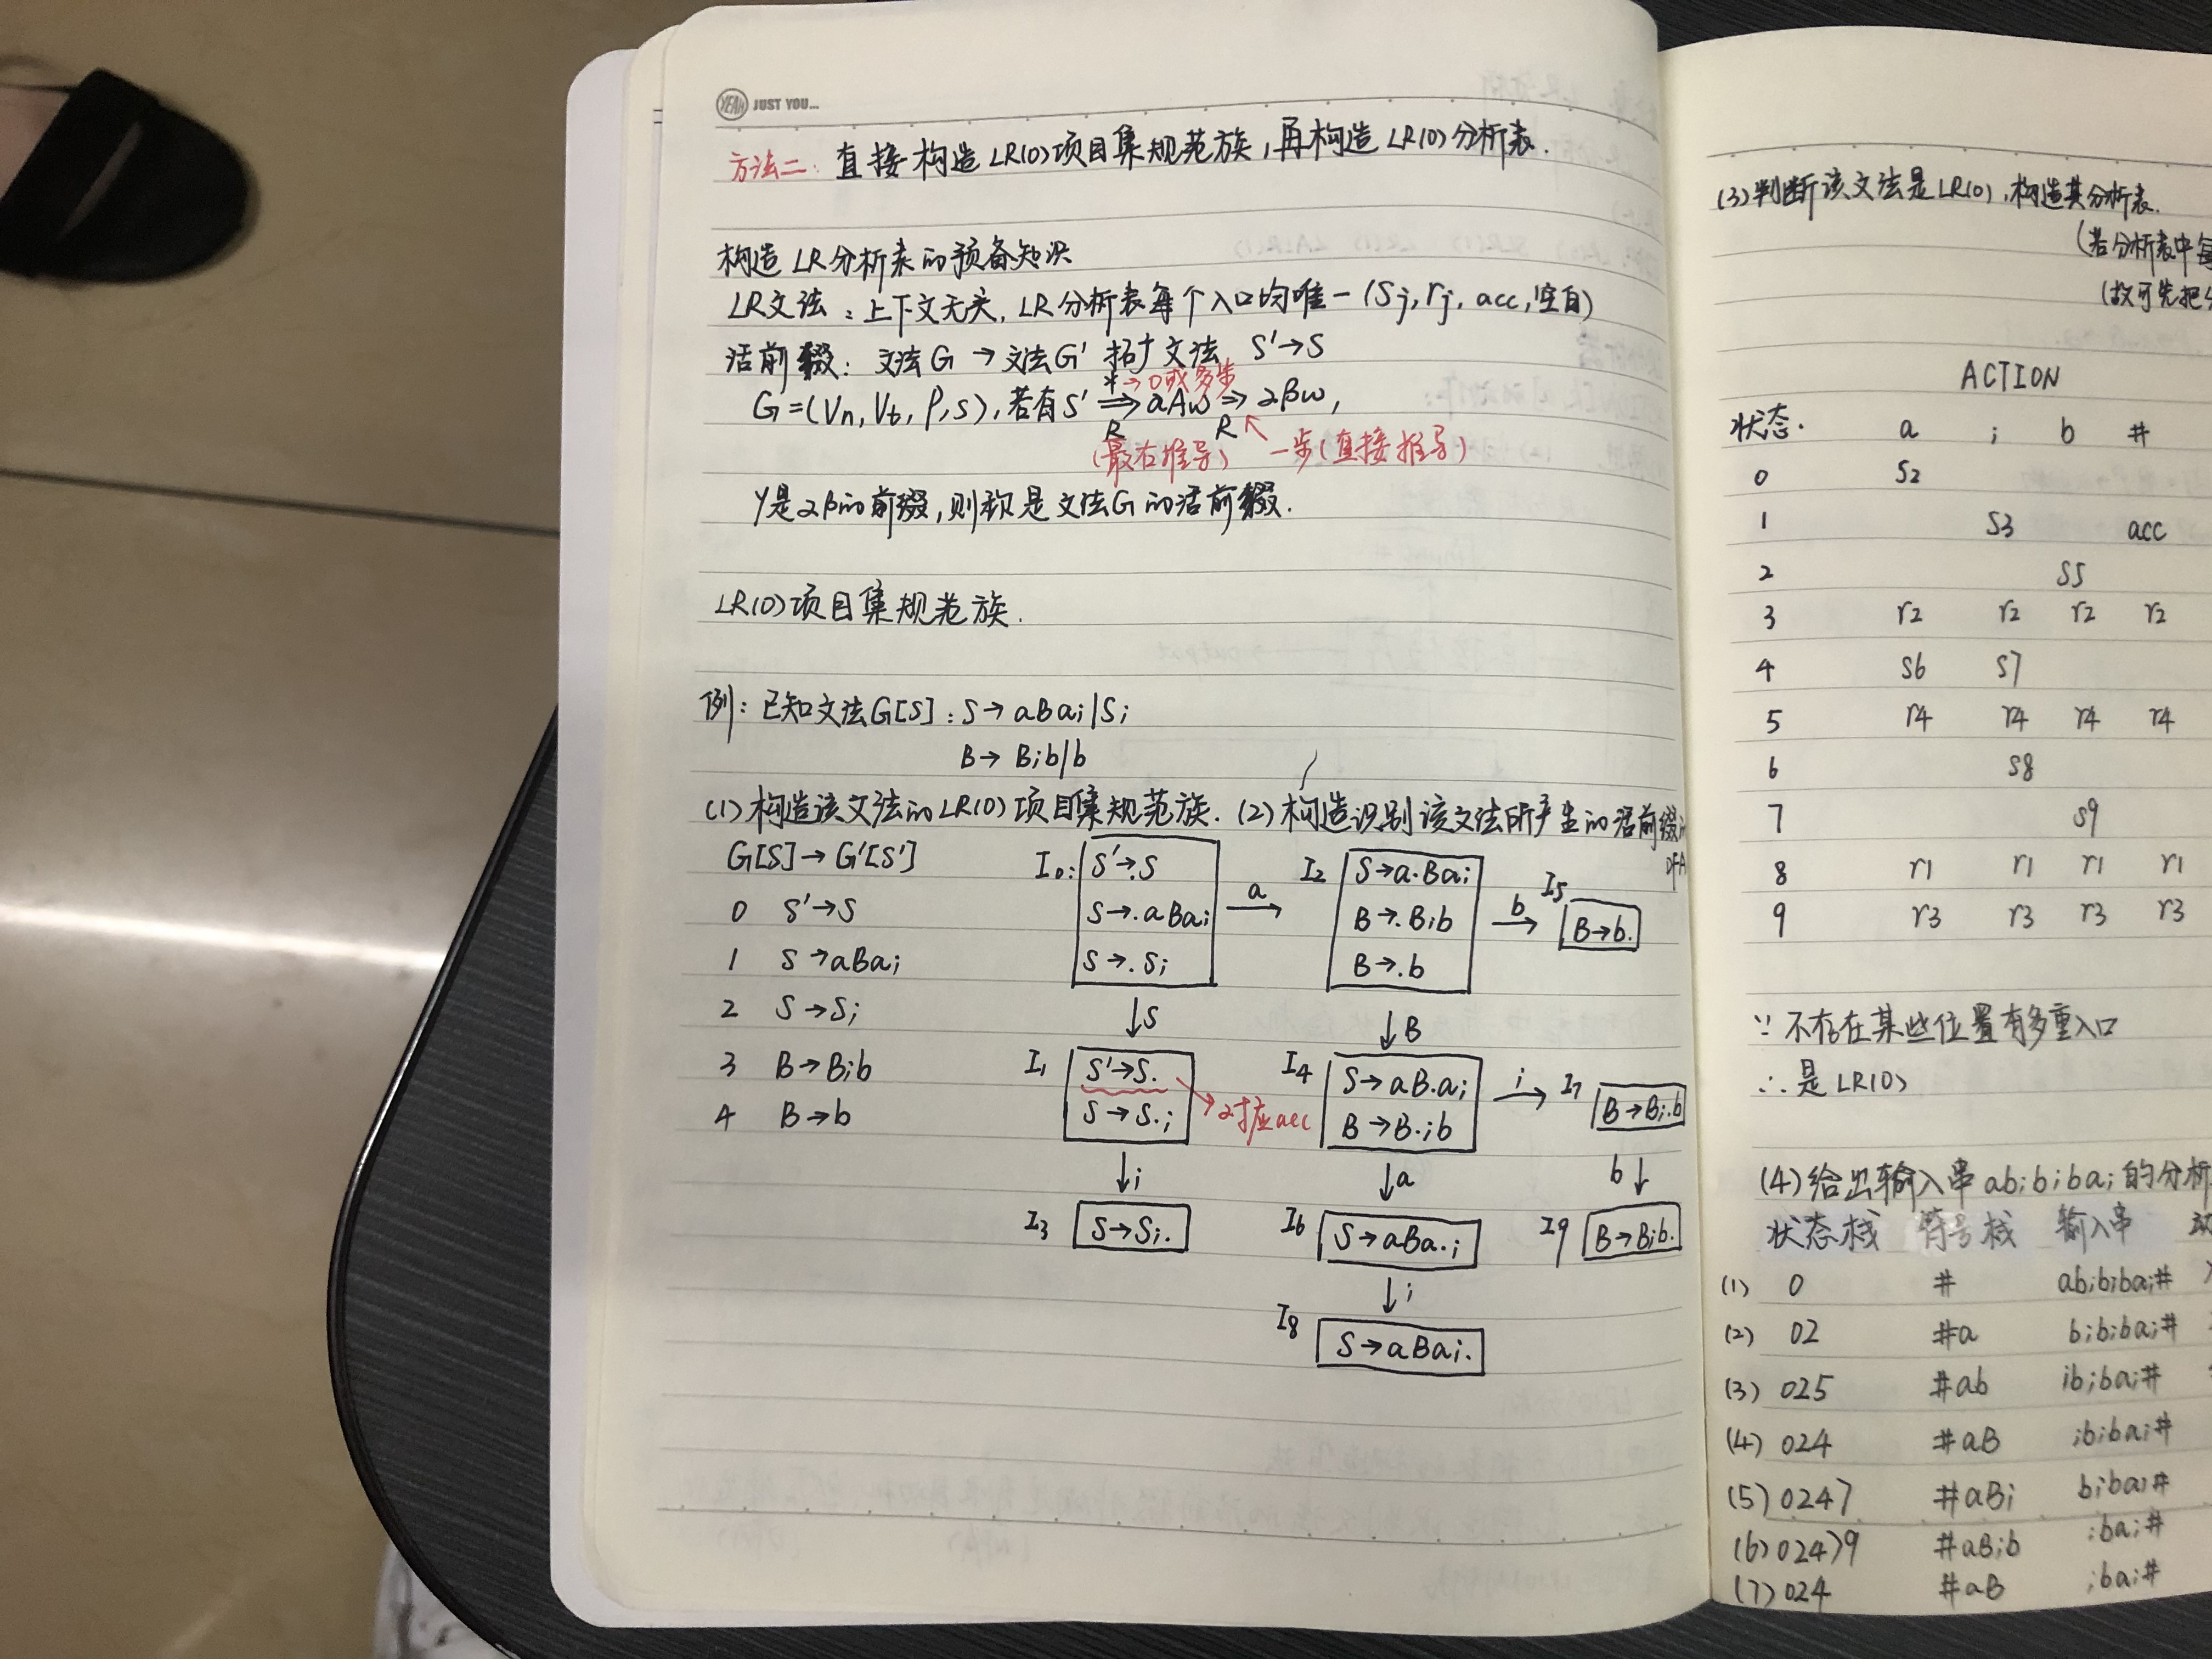 JUST YOU...
方法二：直接构造LR(0)项目集规范族，再构造LR(0)分析表.
构造LR分析表的预备知识
LR文法：上下文无关，LR分析表每个入口均唯一(Sj, rj, acc, 空白)
活前缀：文法G → 文法G' 拓广文法 S'→S
*→0或多步
G=(Vn, Vt, P, S), 若有S' ⇒ αAω ⇒ αβω,
R R
(最右推导) 一步(直接推导)
γ是αβ的前缀，则称是文法G的活前缀.
LR(0)项目集规范族.
例：已知文法G[S]: S→aBai|Si
B→Bib|b
(1)构造该文法的LR(0)项目集规范族. (2)构造识别该文法所产生的活前缀
DFA
G[S]→G'[S']
0 S'→S
1 S→aBai
2 S→Si
3 B→Bib
4 B→b
I0: S'→.S
S→.aBai
S→.Si
a
I2 S→a.Bai
B→.Bib
B→.b
b
I5 B→b.
S
B
I1 S'→S.
S→S.i
对应acc
I4 S→aB.ai
B→B.ib
i
I7 B→Bi.b
i
a
b
I3 S→Si.
I6 S→aBa.i
I9 B→Bib.
i
I8 S→aBai.
(3)判断该文法是LR(0), 构造其分析表.
(若分析表中
(故可先把
ACTION
状态. a i b #
0 S2
1 S3 acc
2 S5
3 r2 r2 r2 r2
4 S6 S7
5 r4 r4 r4 r4
6 S8
7 S9
8 r1 r1 r1 r1
9 r3 r3 r3 r3
∵不存在某些位置有多重入口
∴是LR(0)
(4)给出输入串abibibai的分析
状态栈 符号栈 输入串
(1) 0 # abibibai#
(2) 02 #a bibibai#
(3) 025 #ab ibibai#
(4) 024 #aB ibibai#
(5) 0247 #aBi bibai#
(6) 02479 #aBib ibai#
(7) 024 #aB ibai#